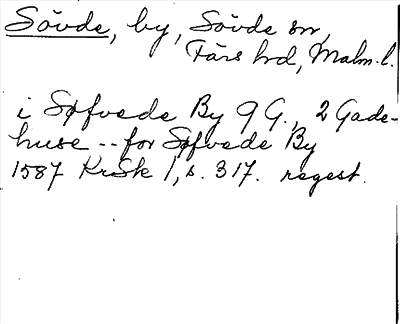 Sövde, by, Sövde sn,
Färs hd, Malm. l.
i Søfvede By 9 G., 2 Gade-
huse -- for Søfvede By
1587 KrSk 1, s. 317. regest.